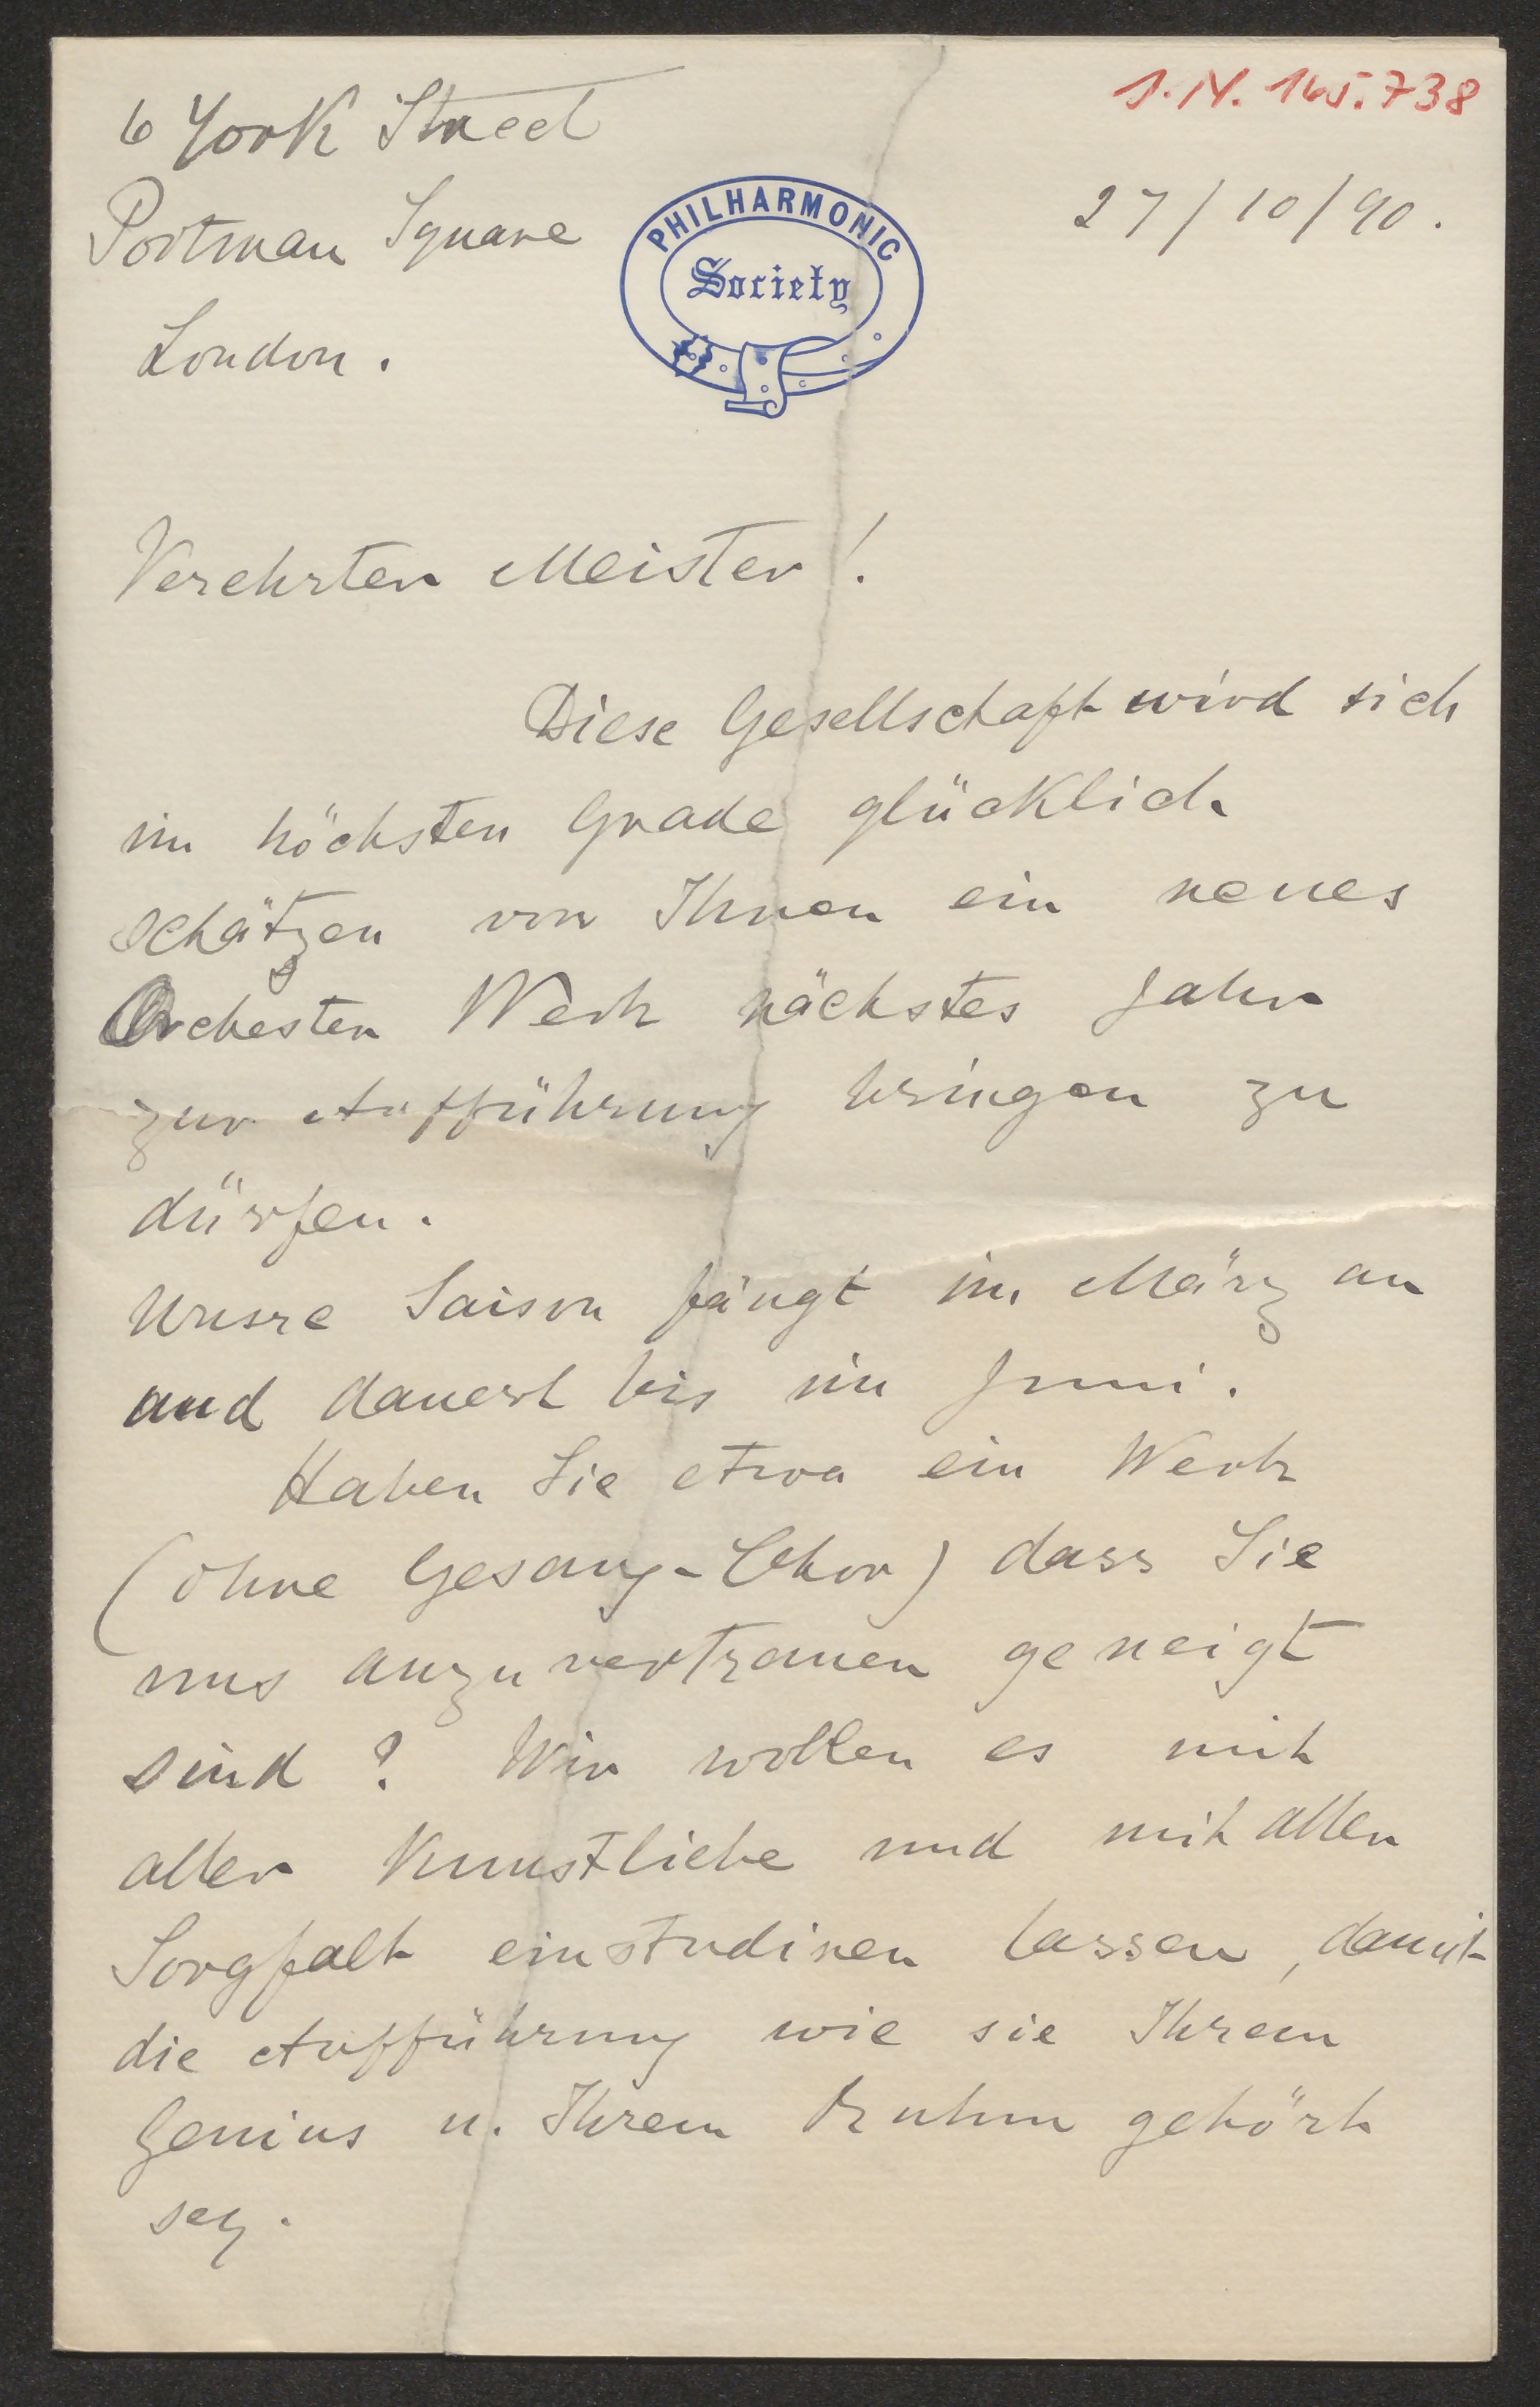 6 York Street
I.N. 165.738
Portman Square
27/10/90.
London.
PHILHARMONIC
Society
Verehrter Meister!
Diese Gesellschaft wird sich
im höchsten Grade glücklich
schätzen von Ihnen ein neues
Orchester Werk nächstes Jahr
zur Aufführung bringen zu
dürfen.
Unsre Saison fängt im März an
und dauert bis im Juni.
Haben Sie etwa ein Werk
(ohne Gesang-Chor) dass Sie
uns anzuvertrauen geneigt
sind? Wir wollen es mit
aller Kunstliebe und mit aller
Sorgfalt einstudiren lassen, damit
die Aufführung wie sie Ihrem
Genius u. Ihrem Ruhm gehört
sey.